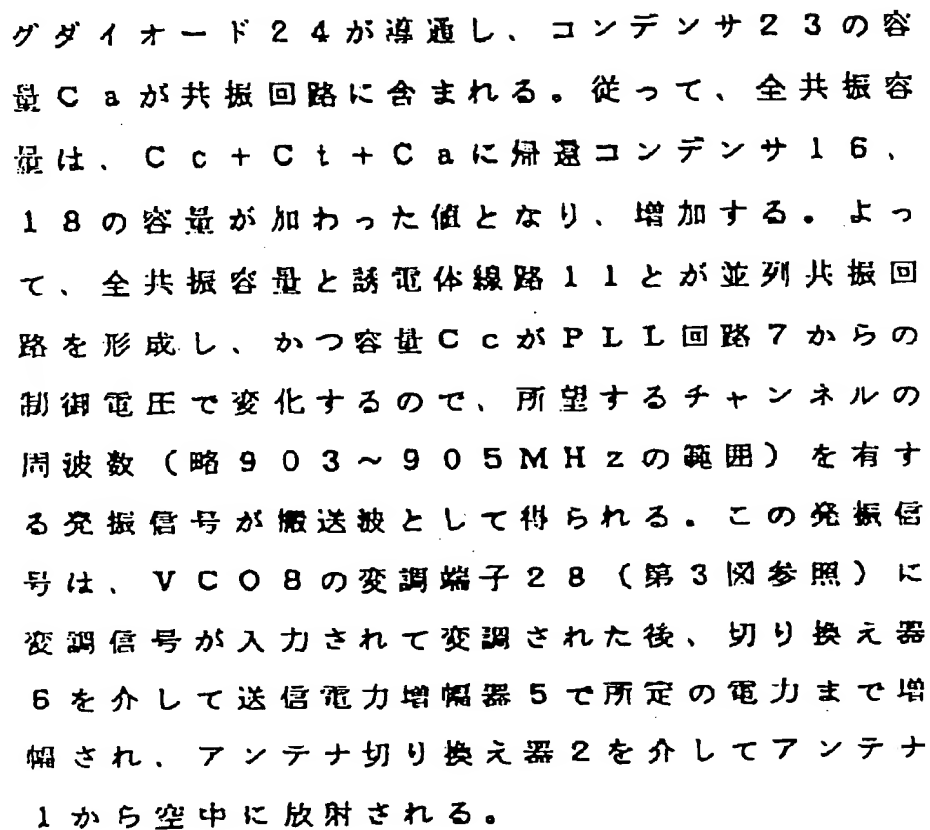 グダイオード24が導通し、コンデンサ23の容
量Caが共振回路に含まれる。従って、全共振容
量は、Cc+Ct+Caに帰還コンデンサ16、
18の容量が加わった値となり、増加する。よっ
て、全共振容量と誘電体線路11とが並列共振回
路を形成し、かつ容量CcがPLL回路7からの
制御電圧で変化するので、所望するチャンネルの
周波数(略903~905MHzの範囲)を有す
る発振信号が搬送波として得られる。この発振信
号は、VCO8の変調端子28(第3図参照)に
変調信号が入力されて変調された後、切り換え器
6を介して送信電力増幅器5で所定の電力まで増
幅され、アンテナ切り換え器2を介してアンテナ
1から空中に放射される。